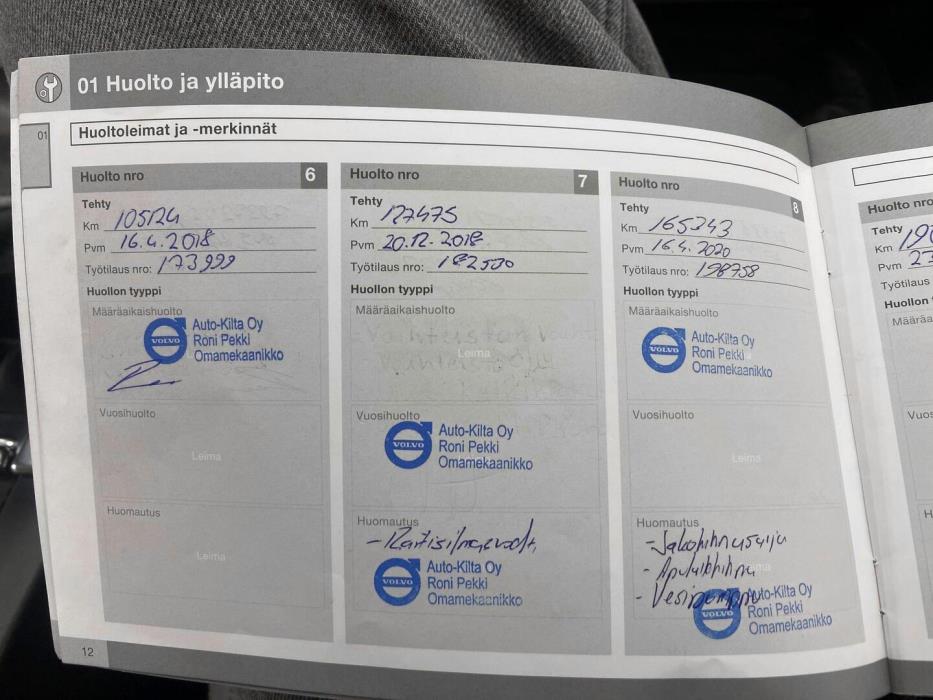 01 Huolto ja ylläpito
01
Huoltoleimat ja -merkinnät
Huolto nro 6
Tehty
Km 105124
Pvm 16.4.2018
Työtilaus nro: 173999
Huollon tyyppi
Määräaikaishuolto
VOLVO
Auto-Kilta Oy
Roni Pekki
Omamekaanikko
Vuosihuolto
Leima
Huomautus
Leima
Huolto nro 7
Tehty
Km 127475
Pvm 20.12.2018
Työtilaus nro: 182530
Huollon tyyppi
Määräaikaishuolto
Leima
Vuosihuolto
VOLVO
Auto-Kilta Oy
Roni Pekki
Omamekaanikko
Huomautus
- Raitisilmasuodt.
VOLVO
Auto-Kilta Oy
Roni Pekki
Omamekaanikko
Huolto nro 8
Tehty
Km 165243
Pvm 16.4.2020
Työtilaus nro: 198758
Huollon tyyppi
Määräaikaishuolto
VOLVO
Auto-Kilta Oy
Roni Pekki
Omamekaanikko
Vuosihuolto
Leima
Huomautus
- Jakohihnasarja
- Apulaihihna
- Vesipumppu
VOLVO
Auto-Kilta Oy
Roni Pekki
Omamekaanikko
Huolto nro
Tehty
Km
Pvm
Työtilaus
Huollon
12